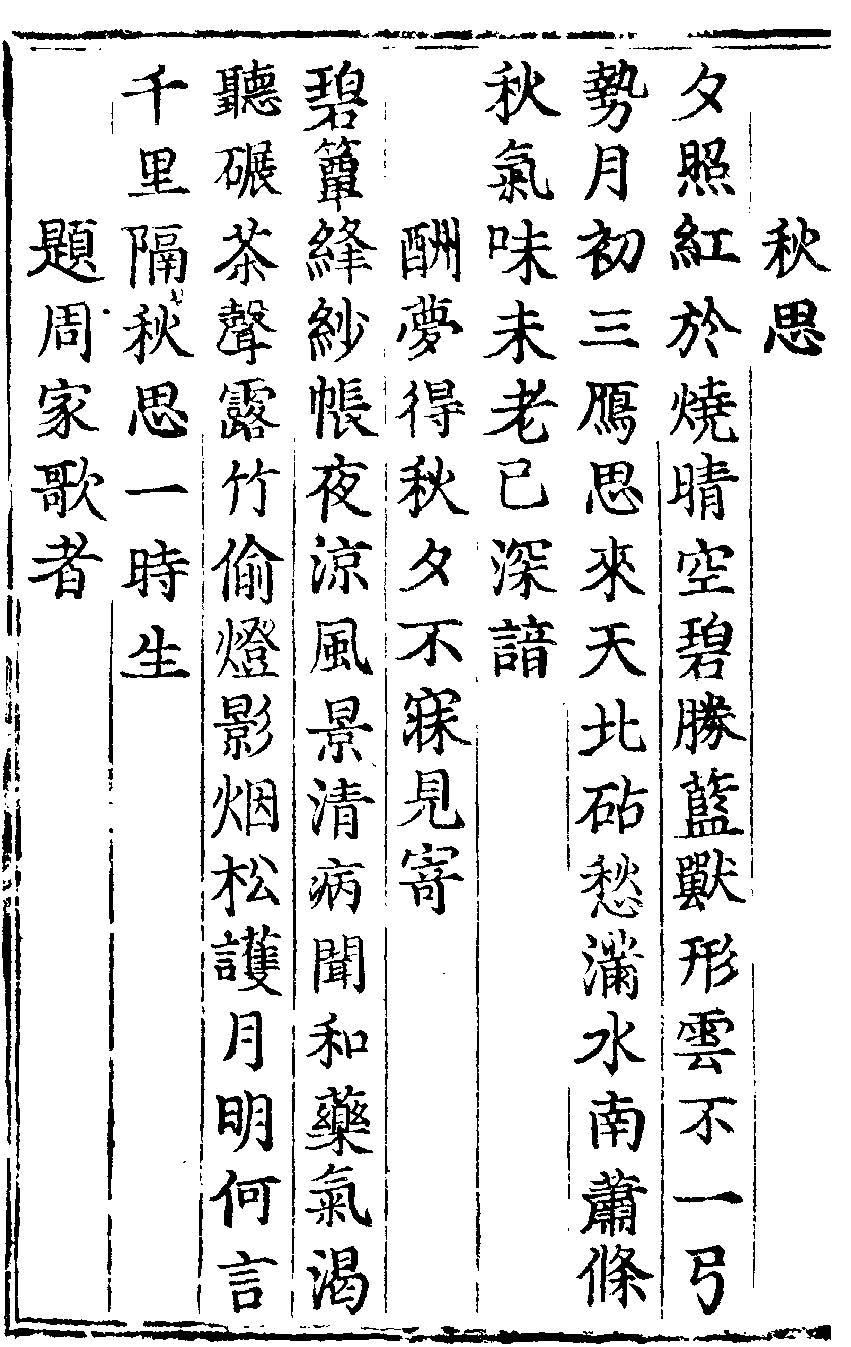 秋思
夕照紅於燒晴空碧勝藍獸形雲不一弓
勢月初三鴈思來天北砧愁滿水南蕭條
秋氣味未老已深諳
酬夢得秋夕不寐見寄
碧簟絳紗帳夜涼風景清病聞和藥氣渴
聽碾茶聲露竹偷燈影烟松護月明何言
千里隔秋思一時生
題周家歌者